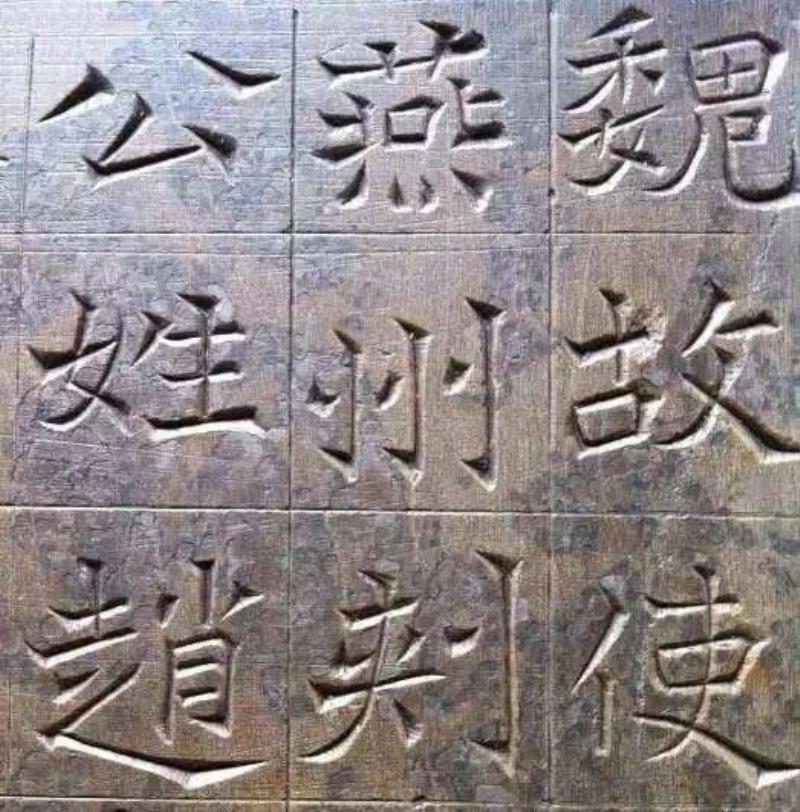 魏故使
燕州刺
公姓趙